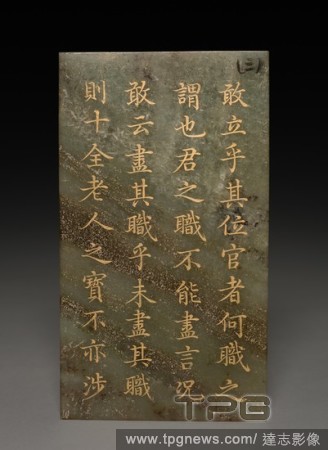 (三)
敢立乎其位官者何職之
謂也君之職不能盡言況
敢云盡其職乎未盡其職
則十全老人之寶不亦涉
TPG
www.tpgnews.com/ 達志影像